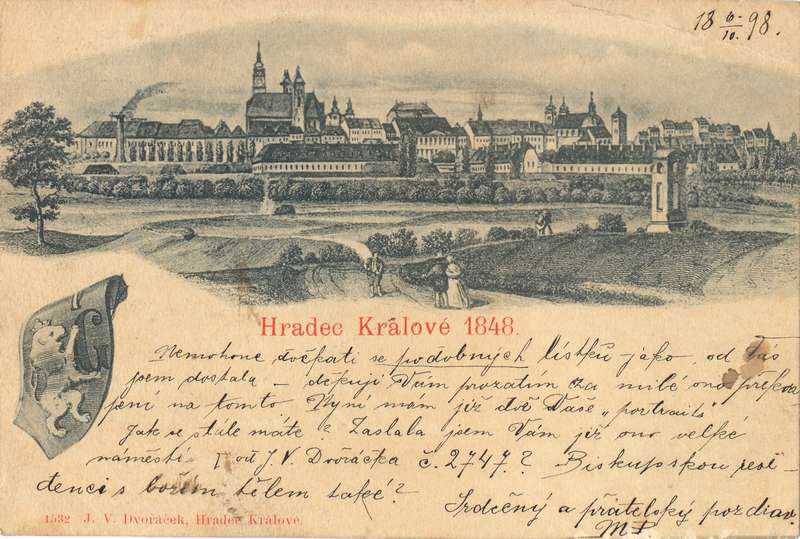 18 6/10. 98.
Hradec Králové 1848.
Nemohouc dočkati se podobných lístků jako od Vás
jsem dostala – děkuji Vám prozatím za milé ono překva
pení na tomto. Nyní mám již dvě Vaše „portraits"
Jak se stále máte? Zaslala jsem Vám již ono velké
náměstí od J. V. Dvořáčka č. 2747.? Biskupskou resi-
denci s božím tělem také?
Srdečný a přátelský pozdrav.
1532 J. V. Dvořáček, Hradec Králové.